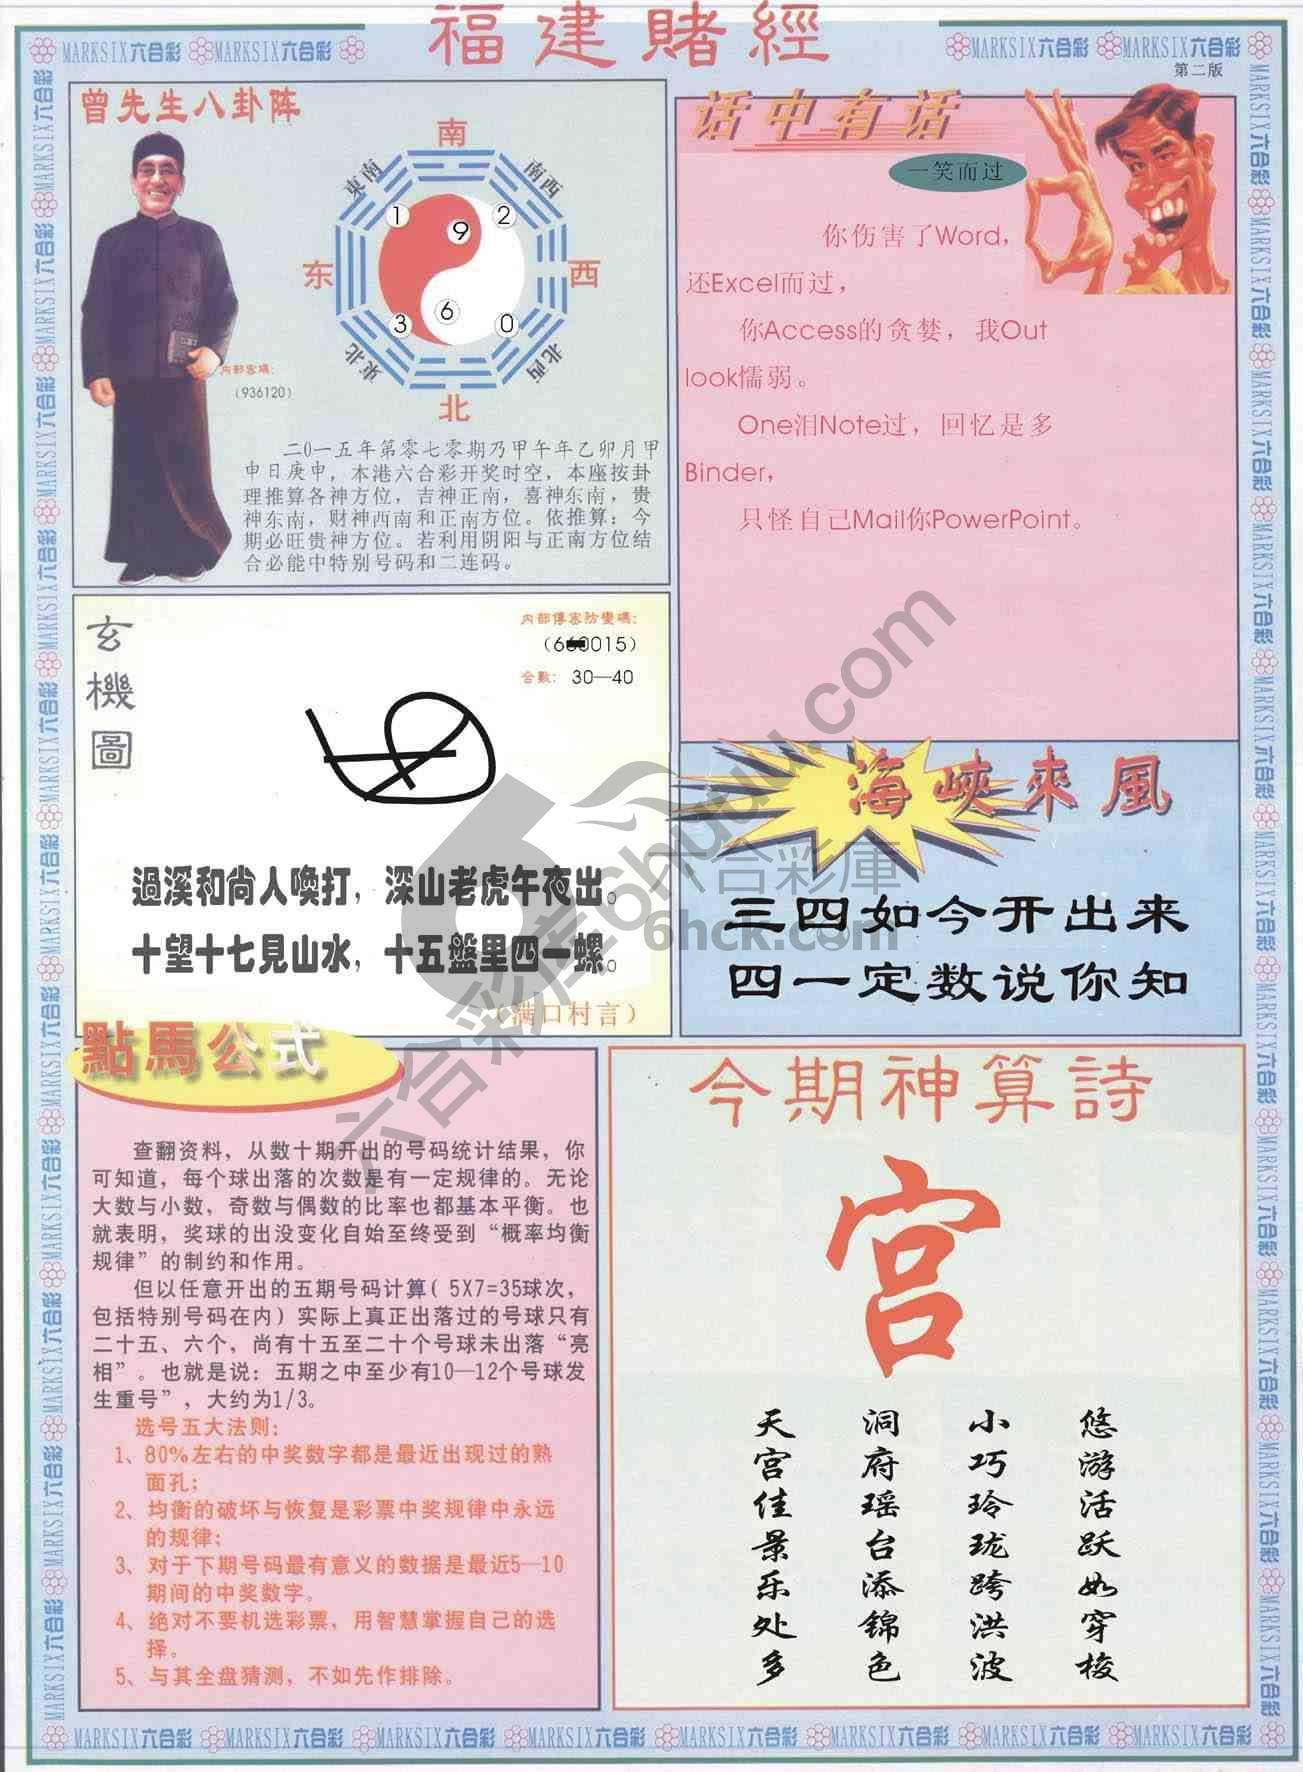 福建賭經
MARKSIX六合彩 MARKSIX六合彩
MARKSIX六合彩 MARKSIX六合彩
第二版
曾先生八卦阵
南
東南
南西
1
9
2
东
西
3
6
0
東北
北西
北
内部密碼:
(936120)
二0一五年第零七零期乃甲午年乙卯月甲
申日庚申，本港六合彩开奖时空，本座按卦
理推算各神方位，吉神正南，喜神东南，贵
神东南，财神西南和正南方位。依推算：今
期必旺贵神方位。若利用阴阳与正南方位结
合必能中特别号码和二连码。
话中有话
一笑而过
你伤害了Word，
还Excel而过，
你Access的贪婪，我Out
look懦弱。
One泪Note过，回忆是多
Binder，
只怪自己Mail你PowerPoint。
玄機圖
内部傳密防變碼:
合數: 30—40
過溪和尚人喚打，深山老虎午夜出。
十望十七見山水，十五盤里四一螺。
（满口村言）
海峽來風
三四如今开出来
四一定数说你知
點馬公式
查翻资料，从数十期开出的号码统计结果，你
可知道，每个球出落的次数是有一定规律的。无论
大数与小数，奇数与偶数的比率也都基本平衡。也
就表明，奖球的出没变化自始至终受到“概率均衡
规律”的制约和作用。
但以任意开出的五期号码计算( 5X7=35球次，
包括特别号码在内）实际上真正出落过的号球只有
二十五、六个，尚有十五至二十个号球未出落“亮
相”。也就是说：五期之中至少有10—12个号球发
生重号”，大约为1/3。
选号五大法则：
1、80%左右的中奖数字都是最近出现过的熟
面孔；
2、均衡的破坏与恢复是彩票中奖规律中永远
的规律；
3、对于下期号码最有意义的数据是最近5—10
期间的中奖数字。
4、绝对不要机选彩票，用智慧掌握自己的选
择。
5、与其全盘猜测，不如先作排除。
今期神算詩
宫
天宫佳景乐处多
洞府瑶台添锦色
小巧玲珑跨洪波
悠游活跃如穿梭
MARKSIX六合彩 MARKSIX六合彩 MARKSIX六合彩 MARKSIX六合彩 MARKSIX六合彩 MARKSIX六合彩 MARKSIX六合彩 MARKSIX六合彩
六合彩库6huuu.com
六合彩庫
6hck.com